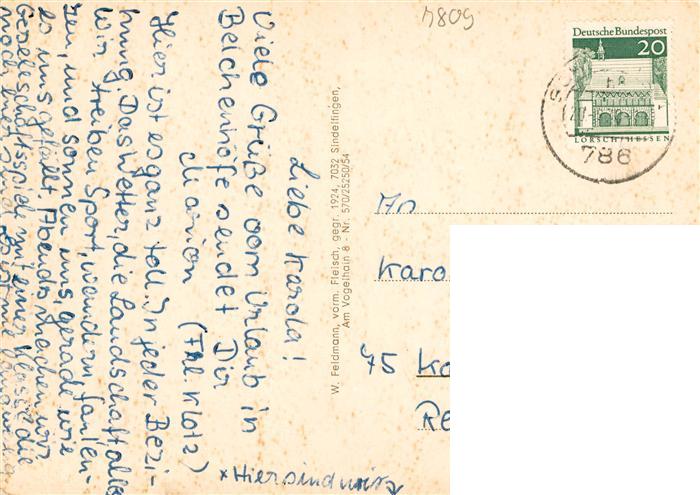 4809
Deutsche Bundespost
20
LORSCH/HESSEN
786
Liebe Karola!
Viele Grüße vom Urlaub in
Belchenhöfe sendet Dir
Marion (Frl. Klotz)
Hier ist es ganz toll. In jeder Bezi-
hung. Das Wetter, die Landschaft alles
Wir treiben Sport, wandern, faulen-
zen, und sonnen uns, gerade wie
es uns gefällt. Abends machen wir
Geselschaftsspiele mit einer Klasse die
noch
x Hier sind wir
W. Feldmann, vorm. Fleisch, gegr. 1924, 7032 Sindelfingen,
Am Vogelhain 8 - Nr. 570/25250/54
An
Karo
75 Ka
Re